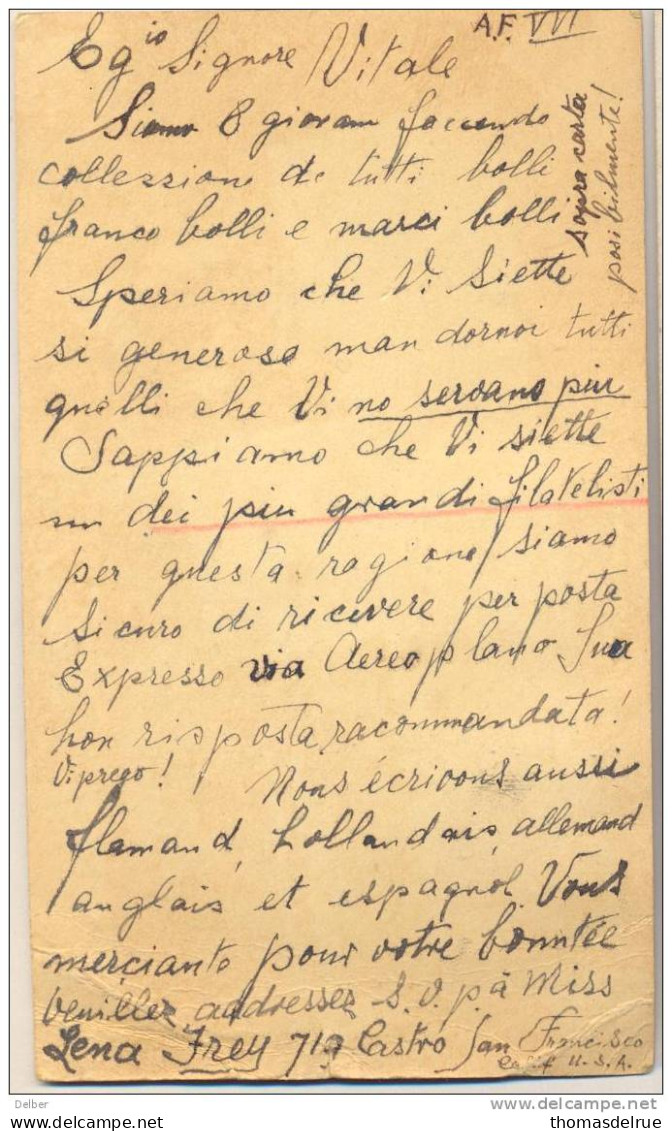 A.F. VVI
Eg io Signore Vitale
Siamo 8 giovani faccendo
collessione de tutti bolli
franco bolli e marci bolli
sopra carta
posibilmente!
Speriamo che Vi Siette
si generoso mandornoi tutti
quelli che Vi no servano piu
Sappiamo che Vi siette
un dei piu grandi filatelisti
per questa ragione siamo
sicuro di ricevere per posta
Expresso via Aereoplano Sua
hon risposta racommandata!
Vi prego! Nous écrivons aussi
flamand, hollandais, allemand
anglais et espagnol. Vous
merciante pour votre bonntée
veuillez addresser S.V.p. à Miss
Lena Frey 719 Castro San Francisco
Calif U.S.A.
Delber
delcampe.net
thomasdelrue